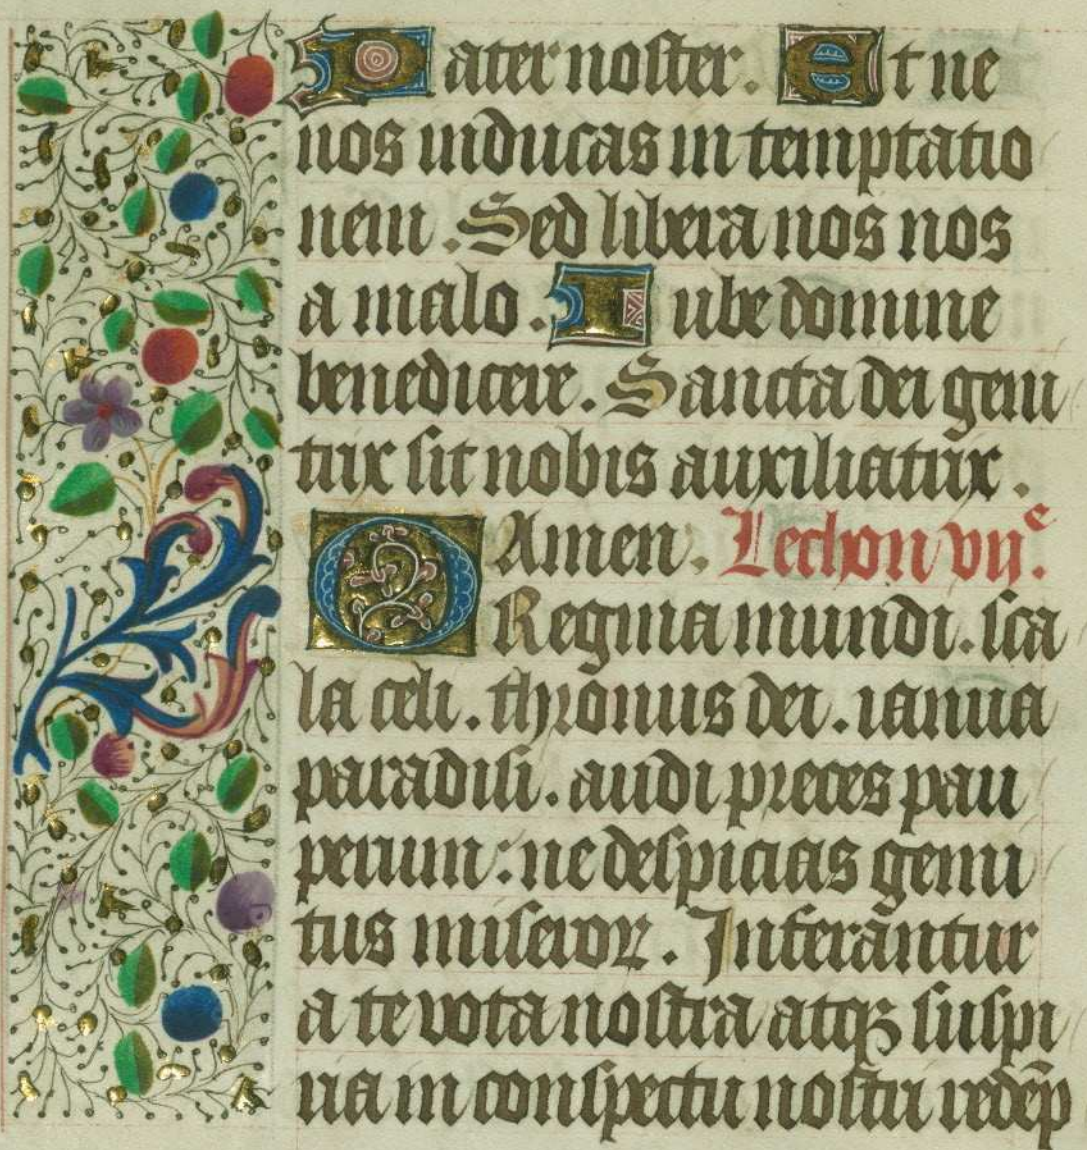 Pater noster. Et ne
nos inducas in temptatio
nem. Sed libera nos nos
a malo. Iube domine
benedicere. Sancta dei geni
trix sit nobis auxiliatrix.
Amen. Lechon vijᵉ.
O Regina mundi. sca
la celi. thronus dei. ianua
paradisi. audi preces pau
perum: ne despicias gemi
tus miseroꝝ. Inferāntur
a te vota nostra atqꝫ suspi
ria in conspectu nostri redēp